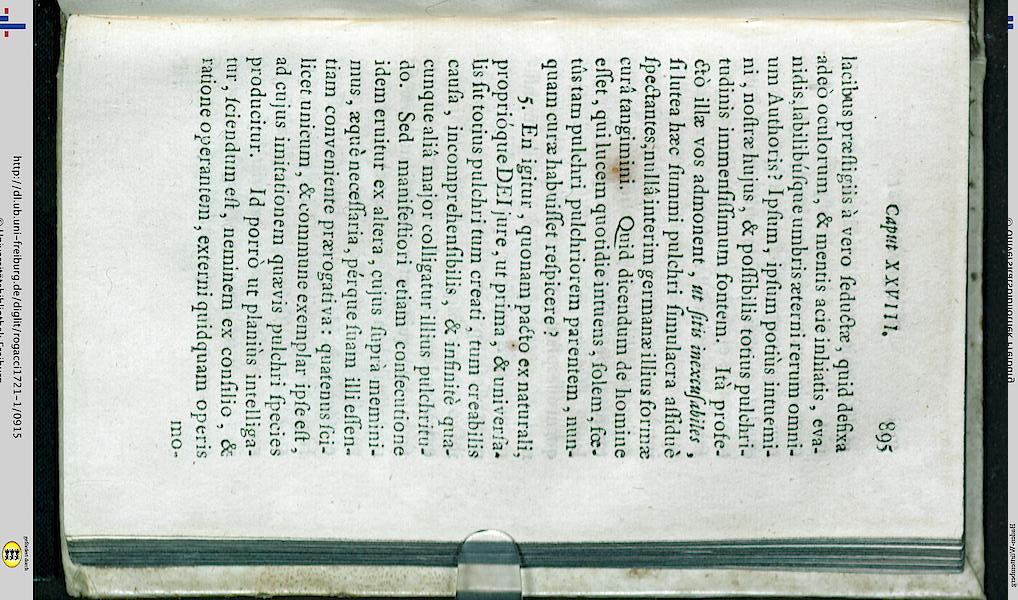 Caput XXVIII. 895
lacibus præstigiis à vero seductæ, quid defixa
adeò oculorum, & mentis acie inhiatis, eva-
nidis, labilibúsque umbris æterni rerum omni-
um Authoris? Ipsum, ipsum potiùs intuemi-
ni, nostræ hujus, & possibilis totius pulchri-
tudinis immensissimum fontem. Ità profe-
ctò illæ vos admonent, ut sitis inexcusabiles,
si lutea hæc summi pulchri simulacra assiduè
spectantes, nullâ interim germanæ illius formæ
curâ tangimini. Quid dicendum de homine
esset, qui lucem quotidie intuens, solem, fœ-
tûs tam pulchri pulchriorem parentem, nun-
quam curæ habuisset respicere?
5. En igitur, quonam pacto ex naturali,
proprióque DEI jure, ut prima, & universa-
lis sit totius pulchri tum creati, tum creabilis
causa, incomprehensibilis, & infinitè qua-
cunque aliâ major colligatur illius pulchritu-
do. Sed manifestiori etiam consecutione
idem eruitur ex altera, cujus suprà memini-
mus, æquè necessaria, pérque suam illi essen-
tiam conveniente prærogativa: quatenus sci-
licet unicum, & commune exemplar ipse est,
ad cujus imitationem quævis pulchri species
producitur. Id porrò ut planiùs intelliga-
tur, sciendum est, neminem ex consilio, &
ratione operantem, externi quidquam operis
mo-
http://dl.ub.uni-freiburg.de/diglit/rogacci1721-1/0915
© Universitätsbibliothek Freiburg
gefördert durch